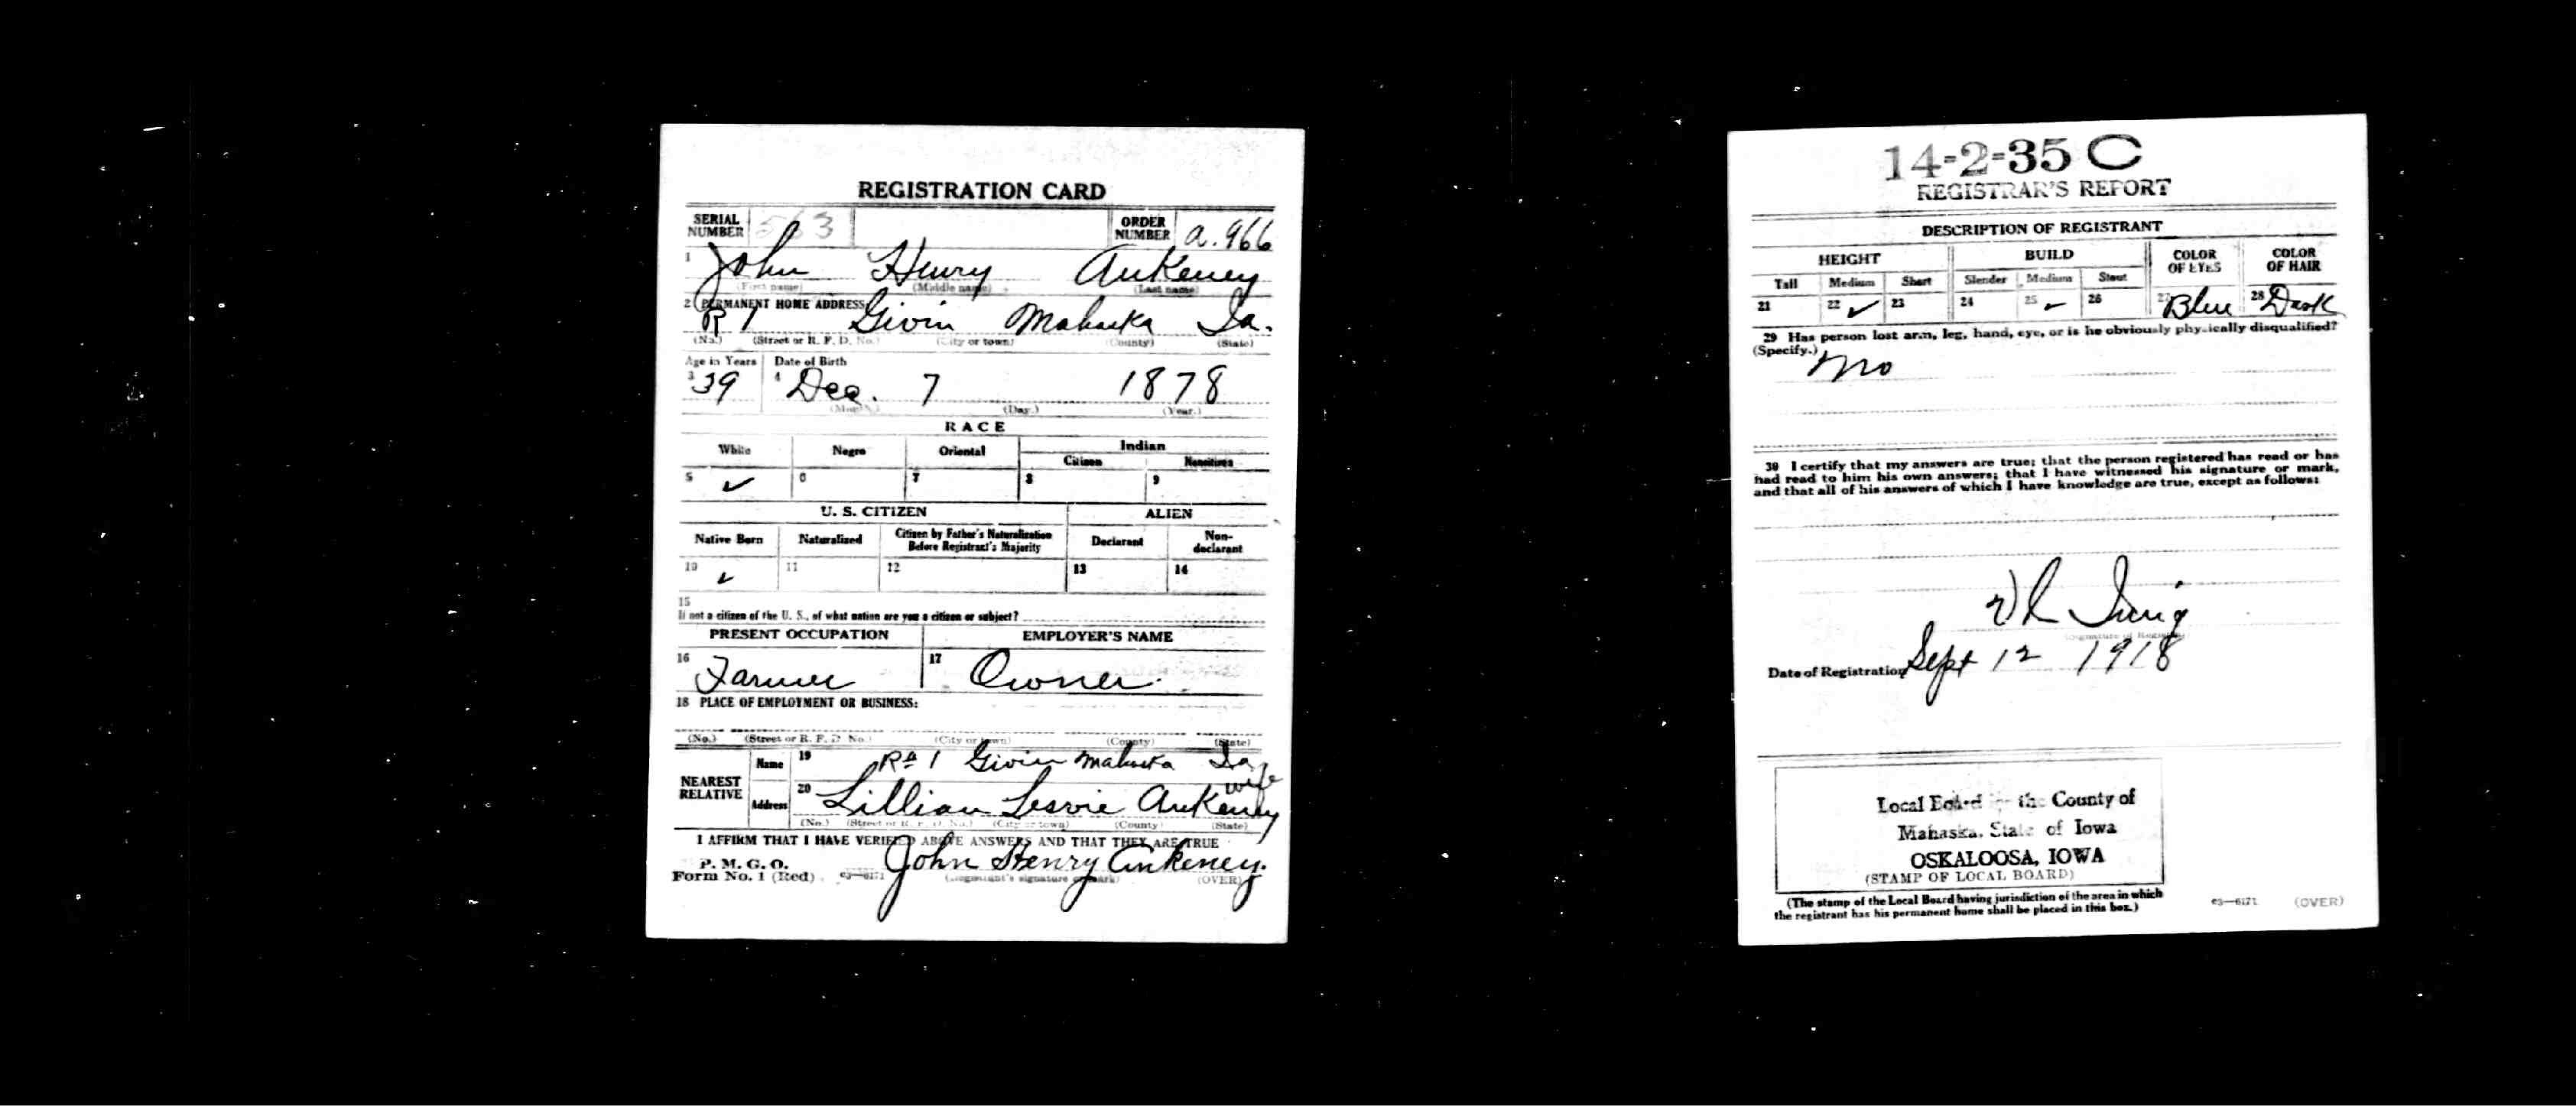 REGISTRATION CARD
SERIAL NUMBER 563 ORDER NUMBER a.966
1 John Henry Ankeney
(First name) (Middle name) (Last name)
2 PERMANENT HOME ADDRESS
R 1 Givin Mahaska Ia.
(No.) (Street or R. F. D. No.) (City or town) (County) (State)
Age in Years Date of Birth
3 39 4 Dec. 7 1878
(Month.) (Day.) (Year.)
RACE
White Negro Oriental Indian
Citizen Noncitizen
5 ✓ 6 7 8 9
U. S. CITIZEN ALIEN
Native Born Naturalized Citizen by Father's Naturalization Before Registrant's Majority Declarant Non-declarant
10 ✓ 11 12 13 14
15
If not a citizen of the U. S., of what nation are you a citizen or subject?
PRESENT OCCUPATION EMPLOYER'S NAME
16 Farmer 17 Owner.
18 PLACE OF EMPLOYMENT OR BUSINESS:
(No.) (Street or R. F. D. No.) (City or town) (County) (State)
NEAREST RELATIVE
Name 19 R# 1 Givin Mahaska Ia
wife
Address 20 Lillian Ankeney
(No.) (Street or R. F. D. No.) (City or town) (County) (State)
I AFFIRM THAT I HAVE VERIFIED ABOVE ANSWERS AND THAT THEY ARE TRUE
P. M. G. O.
Form No. 1 (Red) 03—6171 John Henry Ankeney.
(Registrant's signature or mark) (OVER)
14-2-35 C
REGISTRAR'S REPORT
DESCRIPTION OF REGISTRANT
HEIGHT BUILD COLOR OF EYES COLOR OF HAIR
Tall Medium Short Slender Medium Stout
21 22 ✓ 23 24 25 ✓ 26 27 Blue 28 Dark
29 Has person lost arm, leg, hand, eye, or is he obviously physically disqualified?
(Specify.)
no
30 I certify that my answers are true; that the person registered has read or has
had read to him his own answers; that I have witnessed his signature or mark,
and that all of his answers of which I have knowledge are true, except as follows:
(Signature of Registrar)
Date of Registration Sept 12 1918
Local Board for the County of
Mahaska, State of Iowa
OSKALOOSA, IOWA
(STAMP OF LOCAL BOARD)
(The stamp of the Local Board having jurisdiction of the area in which
the registrant has his permanent home shall be placed in this box.)
03—6171 (OVER)